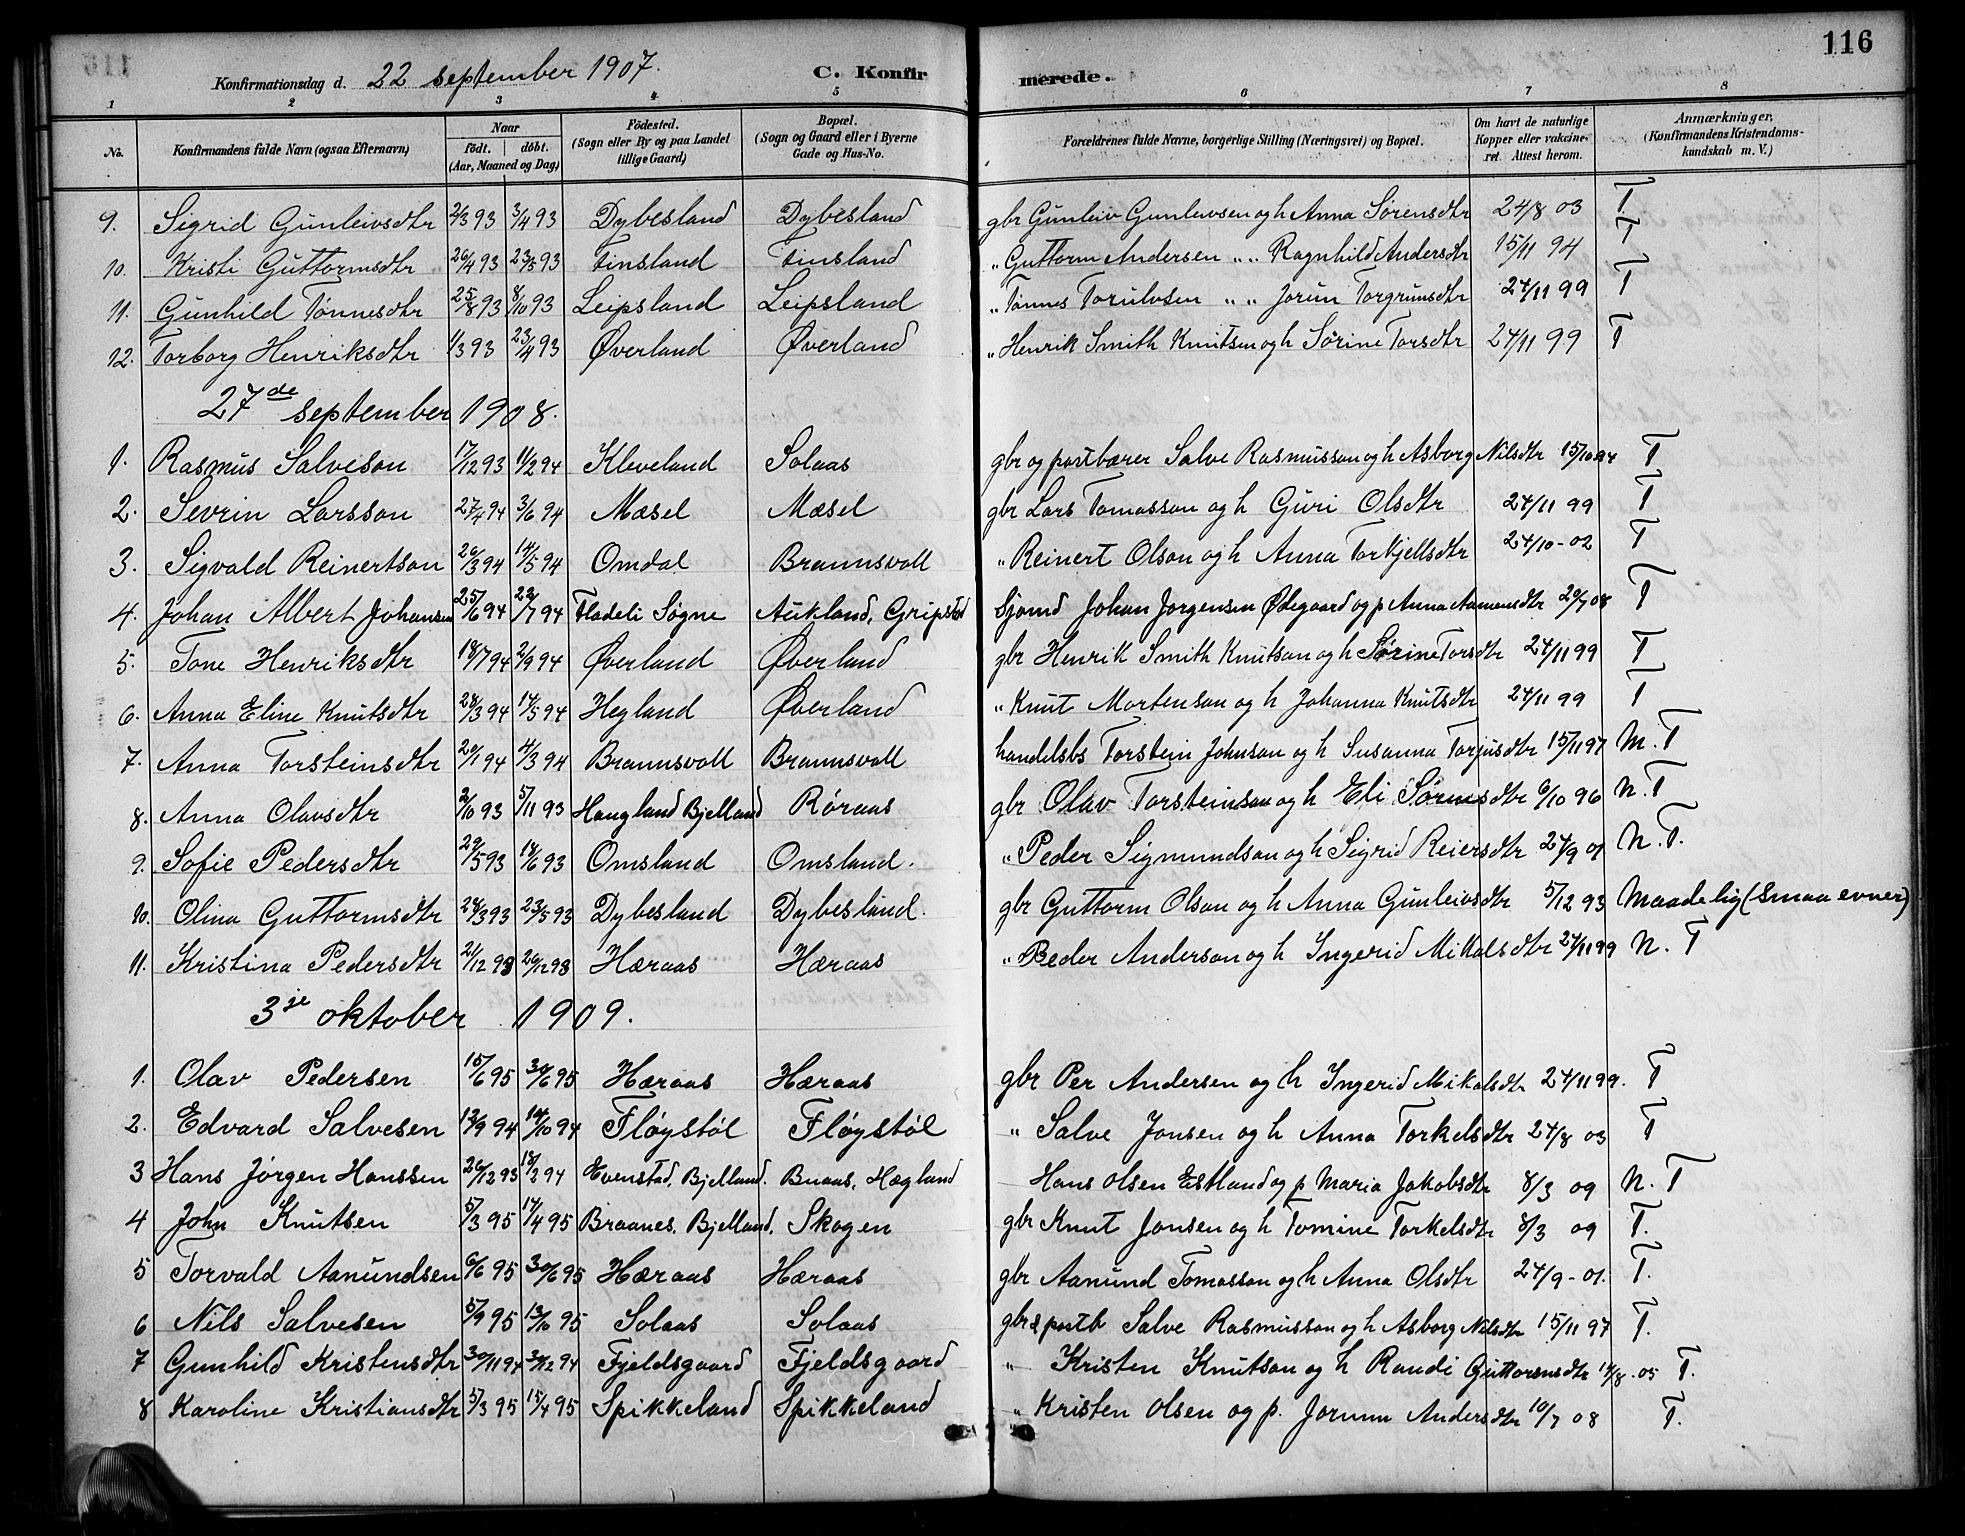 116
Konfirmationsdag d. 22 september 1907. C. Konfirmerede.
1 2 3 4 5 6 7 8
No. Konfirmandens fulde Navn (ogsaa Efternavn) Naar født. døbt. (Aar, Maaned og Dag) Fødested. (Sogn eller By og paa Landet tillige Gaard) Bopæl. (Sogn og Gaard eller i Byerne Gade og Hus-No. Forældrenes fulde Navne, borgerlige Stilling (Næringsvei) og Bopæl. Om havt de naturlige Kopper eller vakcineret. Attest herom. Anmærkninger, (Konfirmandens Kristendomskundskab m. V.)
9. Sigrid Gunleivsdtr 2/3 93 3/4 93 Dybesland Dybesland gbr Gunleiv Gunleivsen og h Anna Sørensdtr 24/8 03 T
10. Kristi Guttormsdtr 26/4 93 23/5 93 Finsland Finsland " Guttorm Andersen " " Ragnhild Andersdtr 15/11 94 T
11. Gunhild Tønnesdtr 25/8 93 8/10 93 Leipsland Leipsland " Tønnes Torulvsen " " Jorun Torgrimsdtr 24/11 99 T
12. Torborg Henriksdtr 1/3 93 23/4 93 Øverland Øverland " Henrik Smith Knutsen og h Sørine Torsdtr 24/11 99 T
27de september 1908.
1. Rasmus Salveson 17/12 93 11/2 94 Kleveland Solaas gbr og postbærer Salve Rasmusson og h Asborg Nilsdtr 15/10 94 T
2. Sevrin Larsson 27/4 94 3/6 94 Mæsel Mæsel gbr Lars Tomasson og h Guri Olsdtr 24/11 99 T
3. Sigvald Reinertson 20/3 94 14/5 94 Omdal Braunsvoll " Reinert Olson og h Anna Torkjellsdtr 24/10-02 T
4. Johan Albert Johansen 25/6 94 22/7 94 Fladeli Søgne Aukland, Gripstad Sjømd Johan Jorgensen Ødegaard og p Anna Aamensdtr 20/7 08 T
5. Tone Henriksdtr 18/7 94 2/9 94 Øverland Øverland gbr Henrik Smith Knutson og h Sørine Torsdtr 24/11 99 T
6. Anna Eline Knutsdtr 28/3 94 14/5 94 Hegland Øverland " Knut Mortenson og h Johanna Knutsdtr 24/11 99 T
7. Anna Torsteinsdtr 20/1 94 4/3 94 Braunsvoll Braunsvoll handelsbs Torstein Johnson og h Susanna Torjusdtr 15/11 97 M. T
8. Anna Olavsdtr 2/10 93 5/11 93 Haugland Bjelland Røraas gbr Olav Torsteinson og h Eli Sørensdtr 6/10 96 N. T
9. Sofie Pedersdtr 29/5 93 18/6 93 Omsland Omsland. " Peder Sigmundson og h Sigrid Reiersdtr 24/9 01 N. T.
10. Olina Guttormsdtr 24/3 93 23/5 93 Dybesland Dybesland. gbr Guttorm Olson og h Anna Gunleivsdtr 5/12 93 Maadelig (Smaa evner)
11. Kristina Pedersdtr 21/12 93 26/12 93 Hæraas Hæraas " Peder Anderson og h Ingerid Mikalsdtr 24/11 99 N. T
3je oktober 1909.
1. Olav Pedersen 15/6 95 30/6 95 Hæraas Hæraas gbr Per Andersen og h Ingerid Mikalsdtr 24/11 99. T
2. Edvard Salvesen 12/9 94 14/10 94 Fløystøl Fløystøl " Salve Jonsen og h Anna Torkelsdtr 24/8 03 T
3 Hans Jørgen Hanssen 26/12 93 18/2 94 Evenstad, Bjelland. Buaas, Hægland Hans Olsen Estland og p Maria Jakobsdtr 8/3 09 N. T
4 John Knutsen 5/3 95 14/4 95 Braanes, Bjelland, Skogen gbr Knut Jonsen og h Tomine Torkelsdtr 8/3 09 T.
5 Torvald Aanundsen 6/6 95 30/6 95 Hæraas Hæraas gbr Aanund Tomasson og h Anna Olsdtr 24/9-01. T.
6 Nils Salvesen 5/9 95 13/10 95 Solaas Solaas gbr & postb Salve Rasmusson og h Asborg Nilsdtr 15/11 97 T.
7 Gunhild Kristensdtr 30/11 94 31/12 94 Fjeldsgaard Fjeldsgaard " Kristen Knutson og h Randi Guttormsdtr 14/8.05 T.
8 Karoline Kristiansdtr 5/3 95 15/4 95 Spikkeland Spikkeland " Kristen Olsen og p. Jorunn Andersdtr 10/7 08 T.